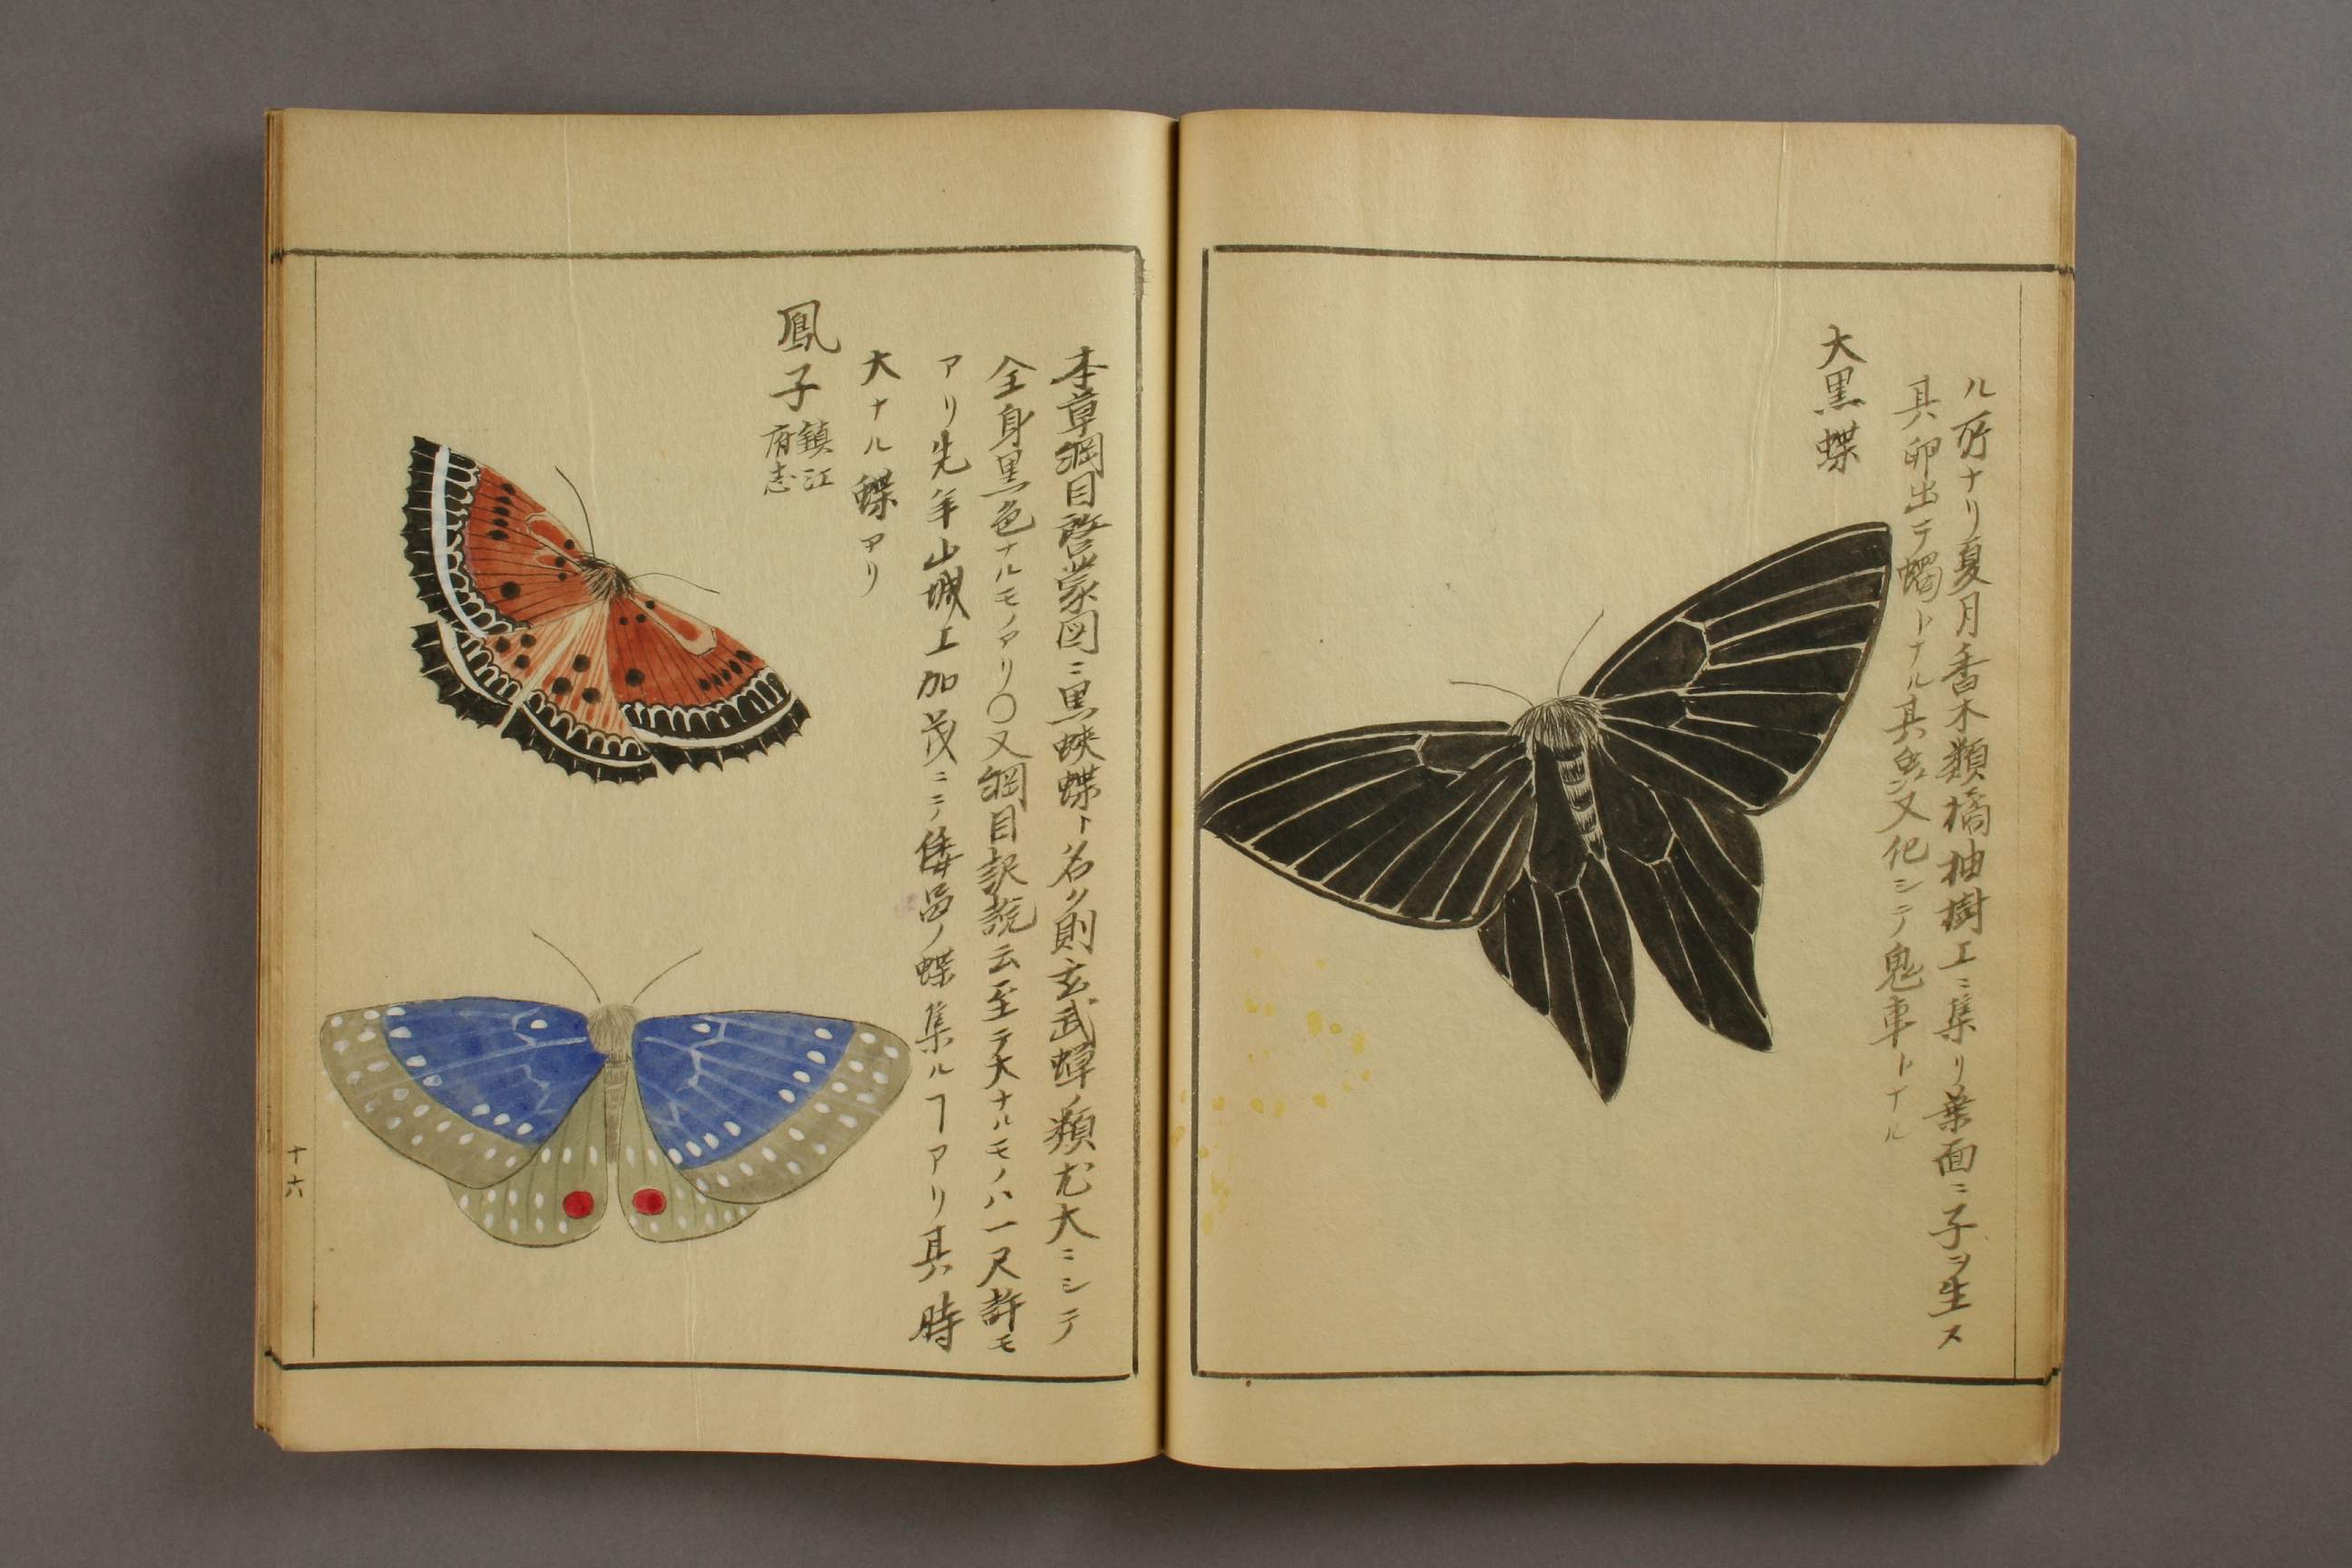 ル所ナリ夏月香木類橘柚樹エニ集リ葉面ニ子ヲ生ス
其卵出テ蠋トナル其虫又化シテ鬼車トナル
大黒蝶
本草綱目啓蒙図ニ黒蛺蝶ト名ク則玄武蟬ノ類尤大ニシテ
全身黒色ナルモノアリ〇又綱目訳説云至テ大ナルモノハ一尺許モ
アリ先年山城上加茂ニテ倭邑ノ蝶集ルヿアリ其時
大ナル蝶アリ
鳳子
鎮江
府志
十六